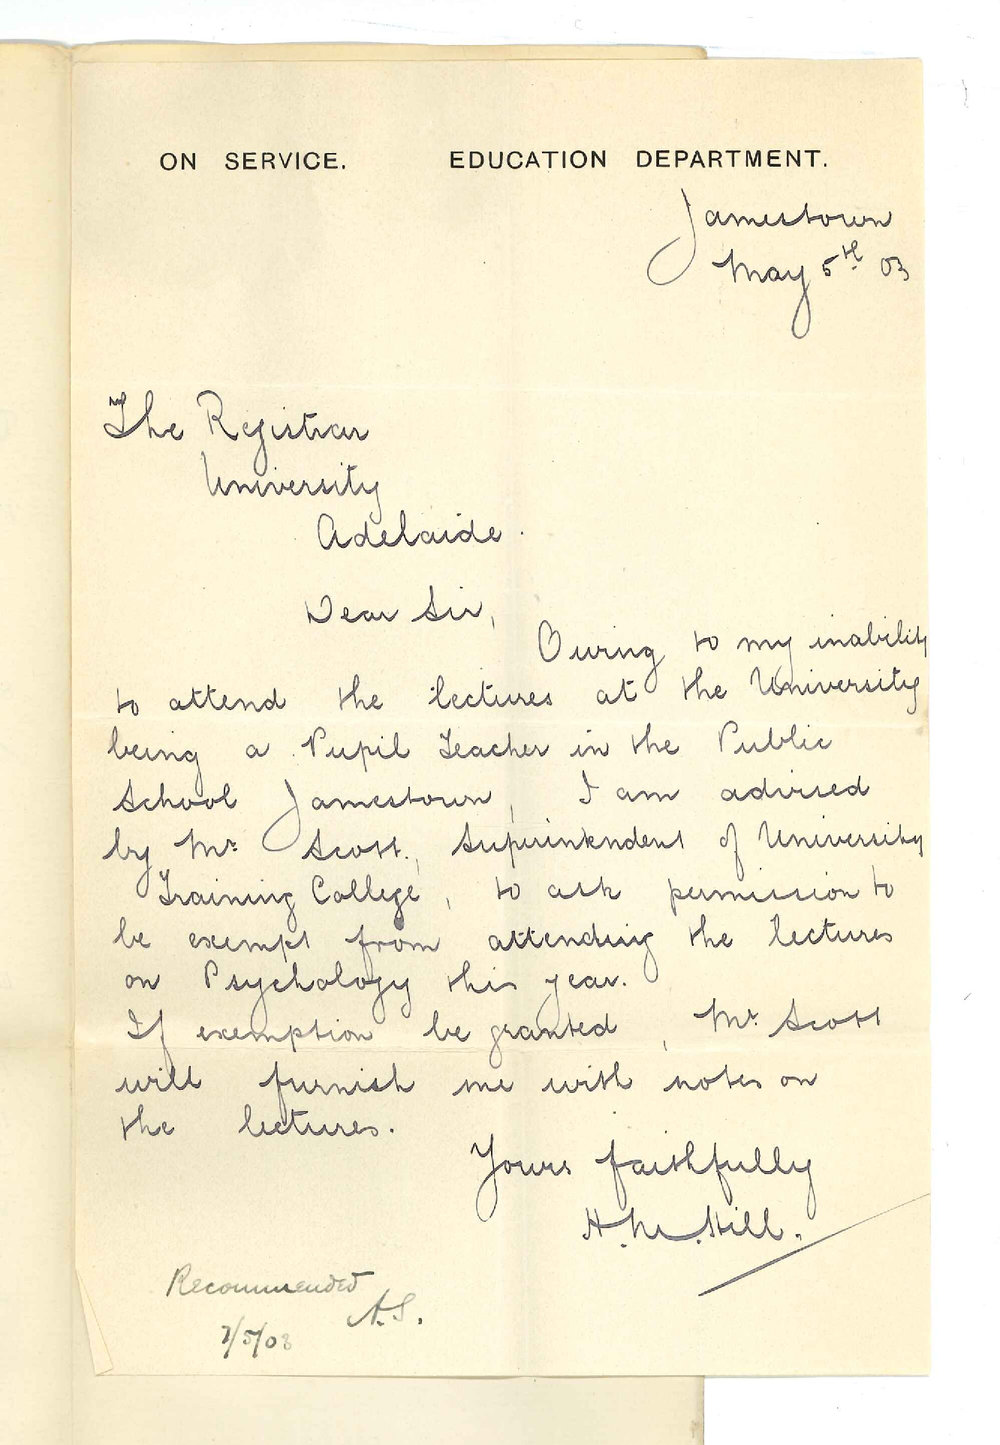 ON SERVICE. EDUCATION DEPARTMENT.
Jamestown
May 5th 03
The Registrar
University
Adelaide.
Dear Sir,
Owing to my inability
to attend the lectures at the University
being a Pupil Teacher in the Public
School Jamestown, I am advised
by Mr. Scott, Superintendent of University
Training College, to ask permission to
be exempt from attending the lectures
on Psychology this year.
If exemption be granted, Mr. Scott
will furnish me with notes on
the lectures.
Yours faithfully
H.M.Hill.
Recommended
A.S.
7/5/03